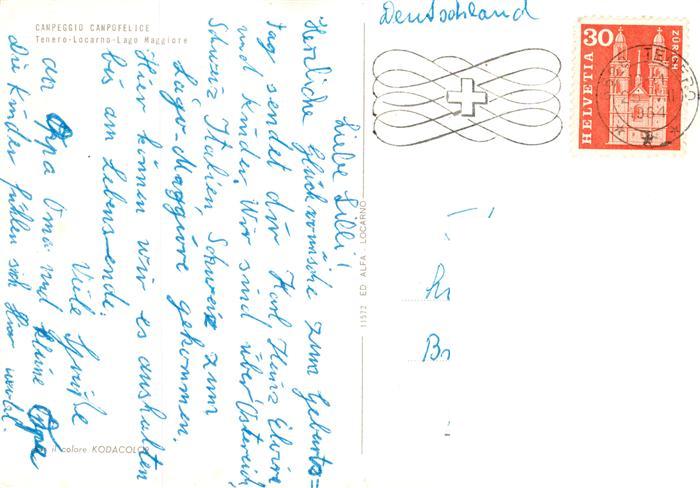 CAMPEGGIO CAMPOFELICE
Tenero-Locarno-Lago Maggiore
Liebe Lilli!
Herzliche Glückwünsche zum Geburts=
tag sendet dir Karl, Heinz Elvira
und Kinder. Wir sind über Östereich
Schweiz Italien, Schweiz zum
Lago-Maggiore gekommen.
Hier können wir es aushalten
bis am Lebensende.
Viele Grüße
an Oppa Oma und kleine Oppa
die Kinder fühlen sich hier wohl.
il colore KODACOLOR
11572 ED. ALFA LOCARNO
Deutschland
HELVETIA
30
ZÜRICH
TENERO
1964